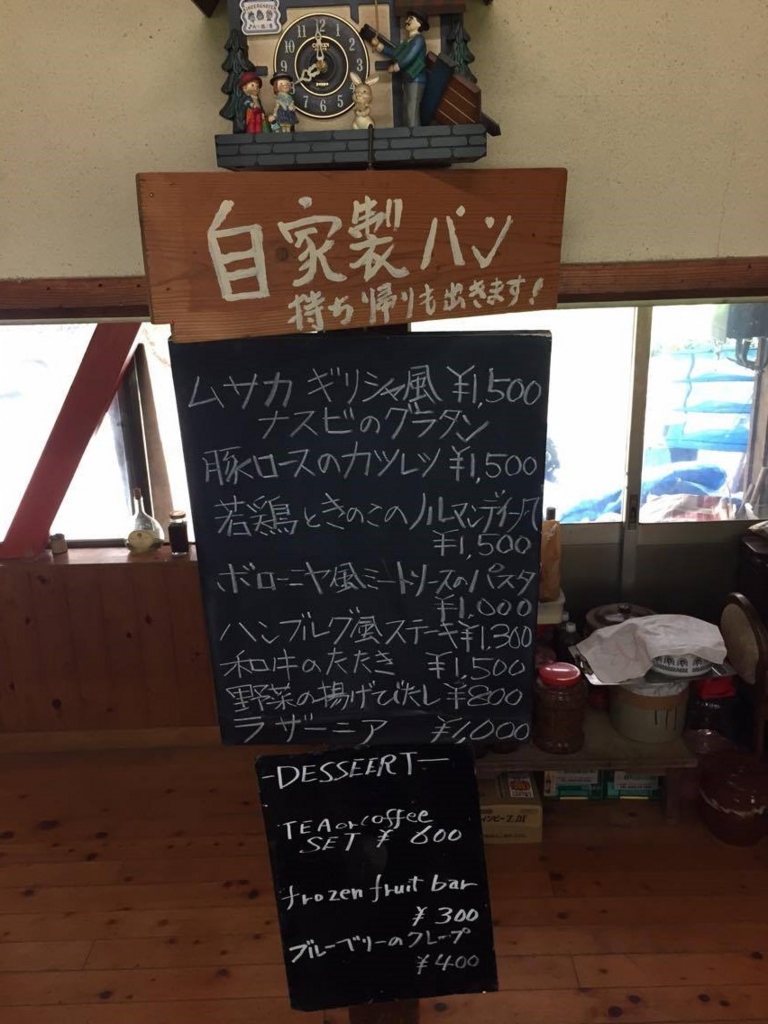 自家製パン
持ち帰りも出きます!
ムサカ ギリシャ風 ¥1,500
ナスビのグラタン
豚ロースのカツレツ ¥1,500
若鶏ときのこのノルマンディー风
¥1,500
ボローニャ風ミートソースのパスタ
¥1,000
ハンブルグ風ステーキ ¥1,300
和牛のたたき ¥1,500
野菜の揚げびたし ¥800
ラザーニア ¥1,000
-DESSEERT-
TEA or coffee
SET ¥ 600
frozen fruit bar
¥300
ブルーベリーのクレープ
¥400